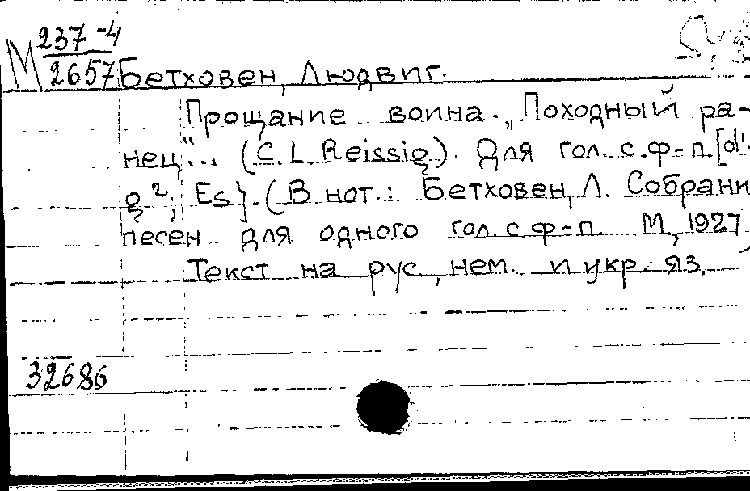 М 237-4
2657 Бетховен, Людвиг.
Прощание воина. „Походный ра-
нец"... (C. L. Reissig). Для гол. с ф-п. [d¹-
g²; Es]. (В нот.: Бетховен, Л. Собрани
песен для одного гол. с ф-п. М., 1927
Текст на рус., нем. и укр. яз.
32686